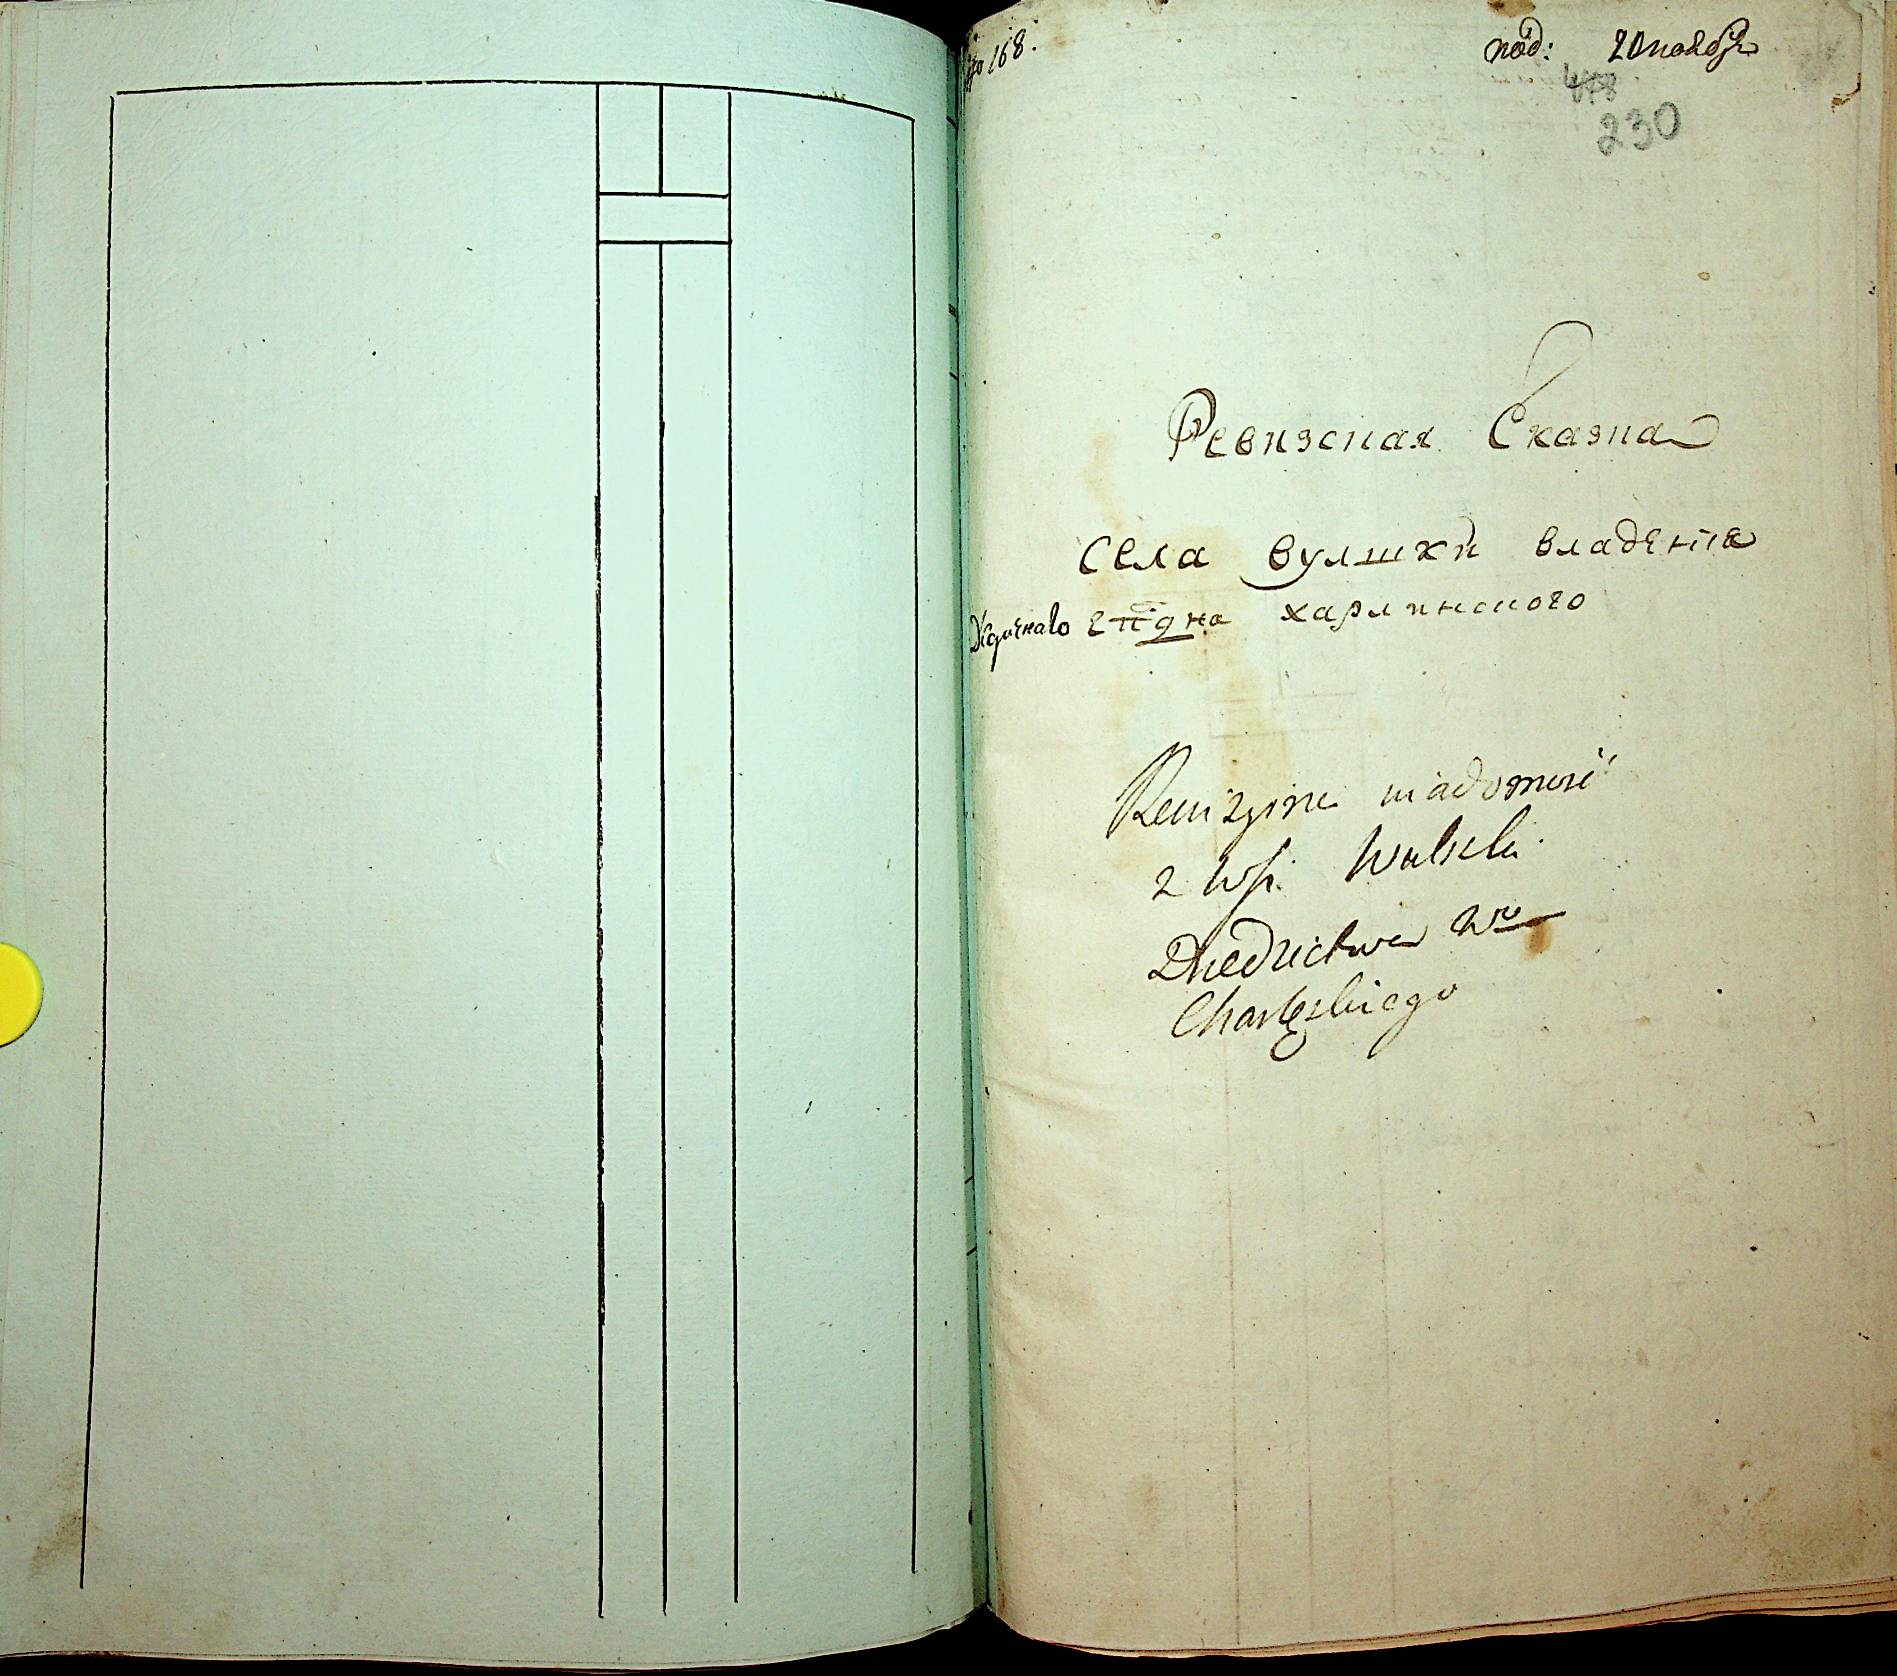 № 168.
под: 20 ноабря
478
230
Ревизсная Сказна
Села вулшки владения
Дедичнаго гпдна харлинсного
Rewizyina wiadomość
z Wsi Wulszki
Dziedzictwa Wo
Charlęskiego